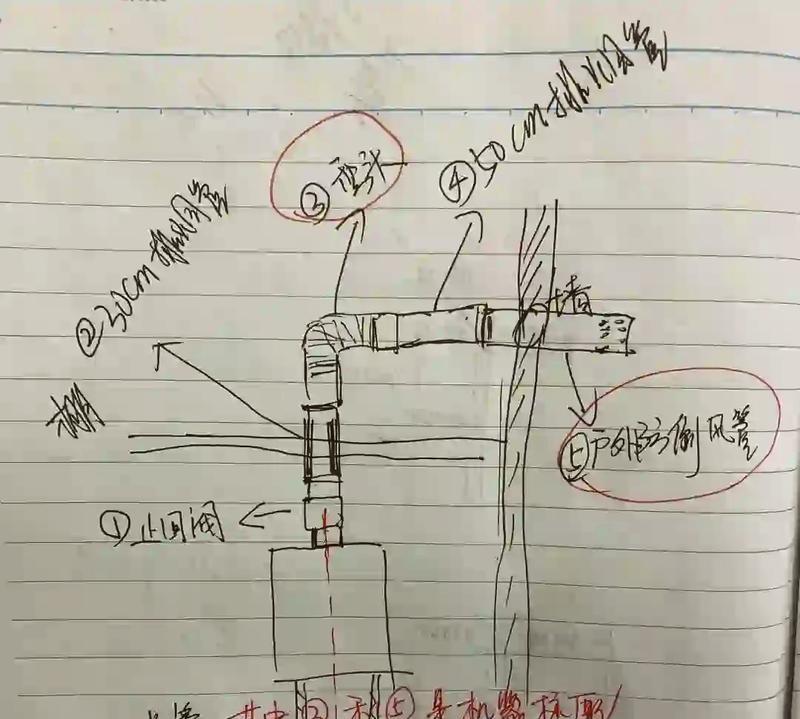 ④50cm排烟管
③弯头
②30cm排烟管
墙
棚
⑤户外防倒风管
①止回阀
其中③和⑤是机器标配